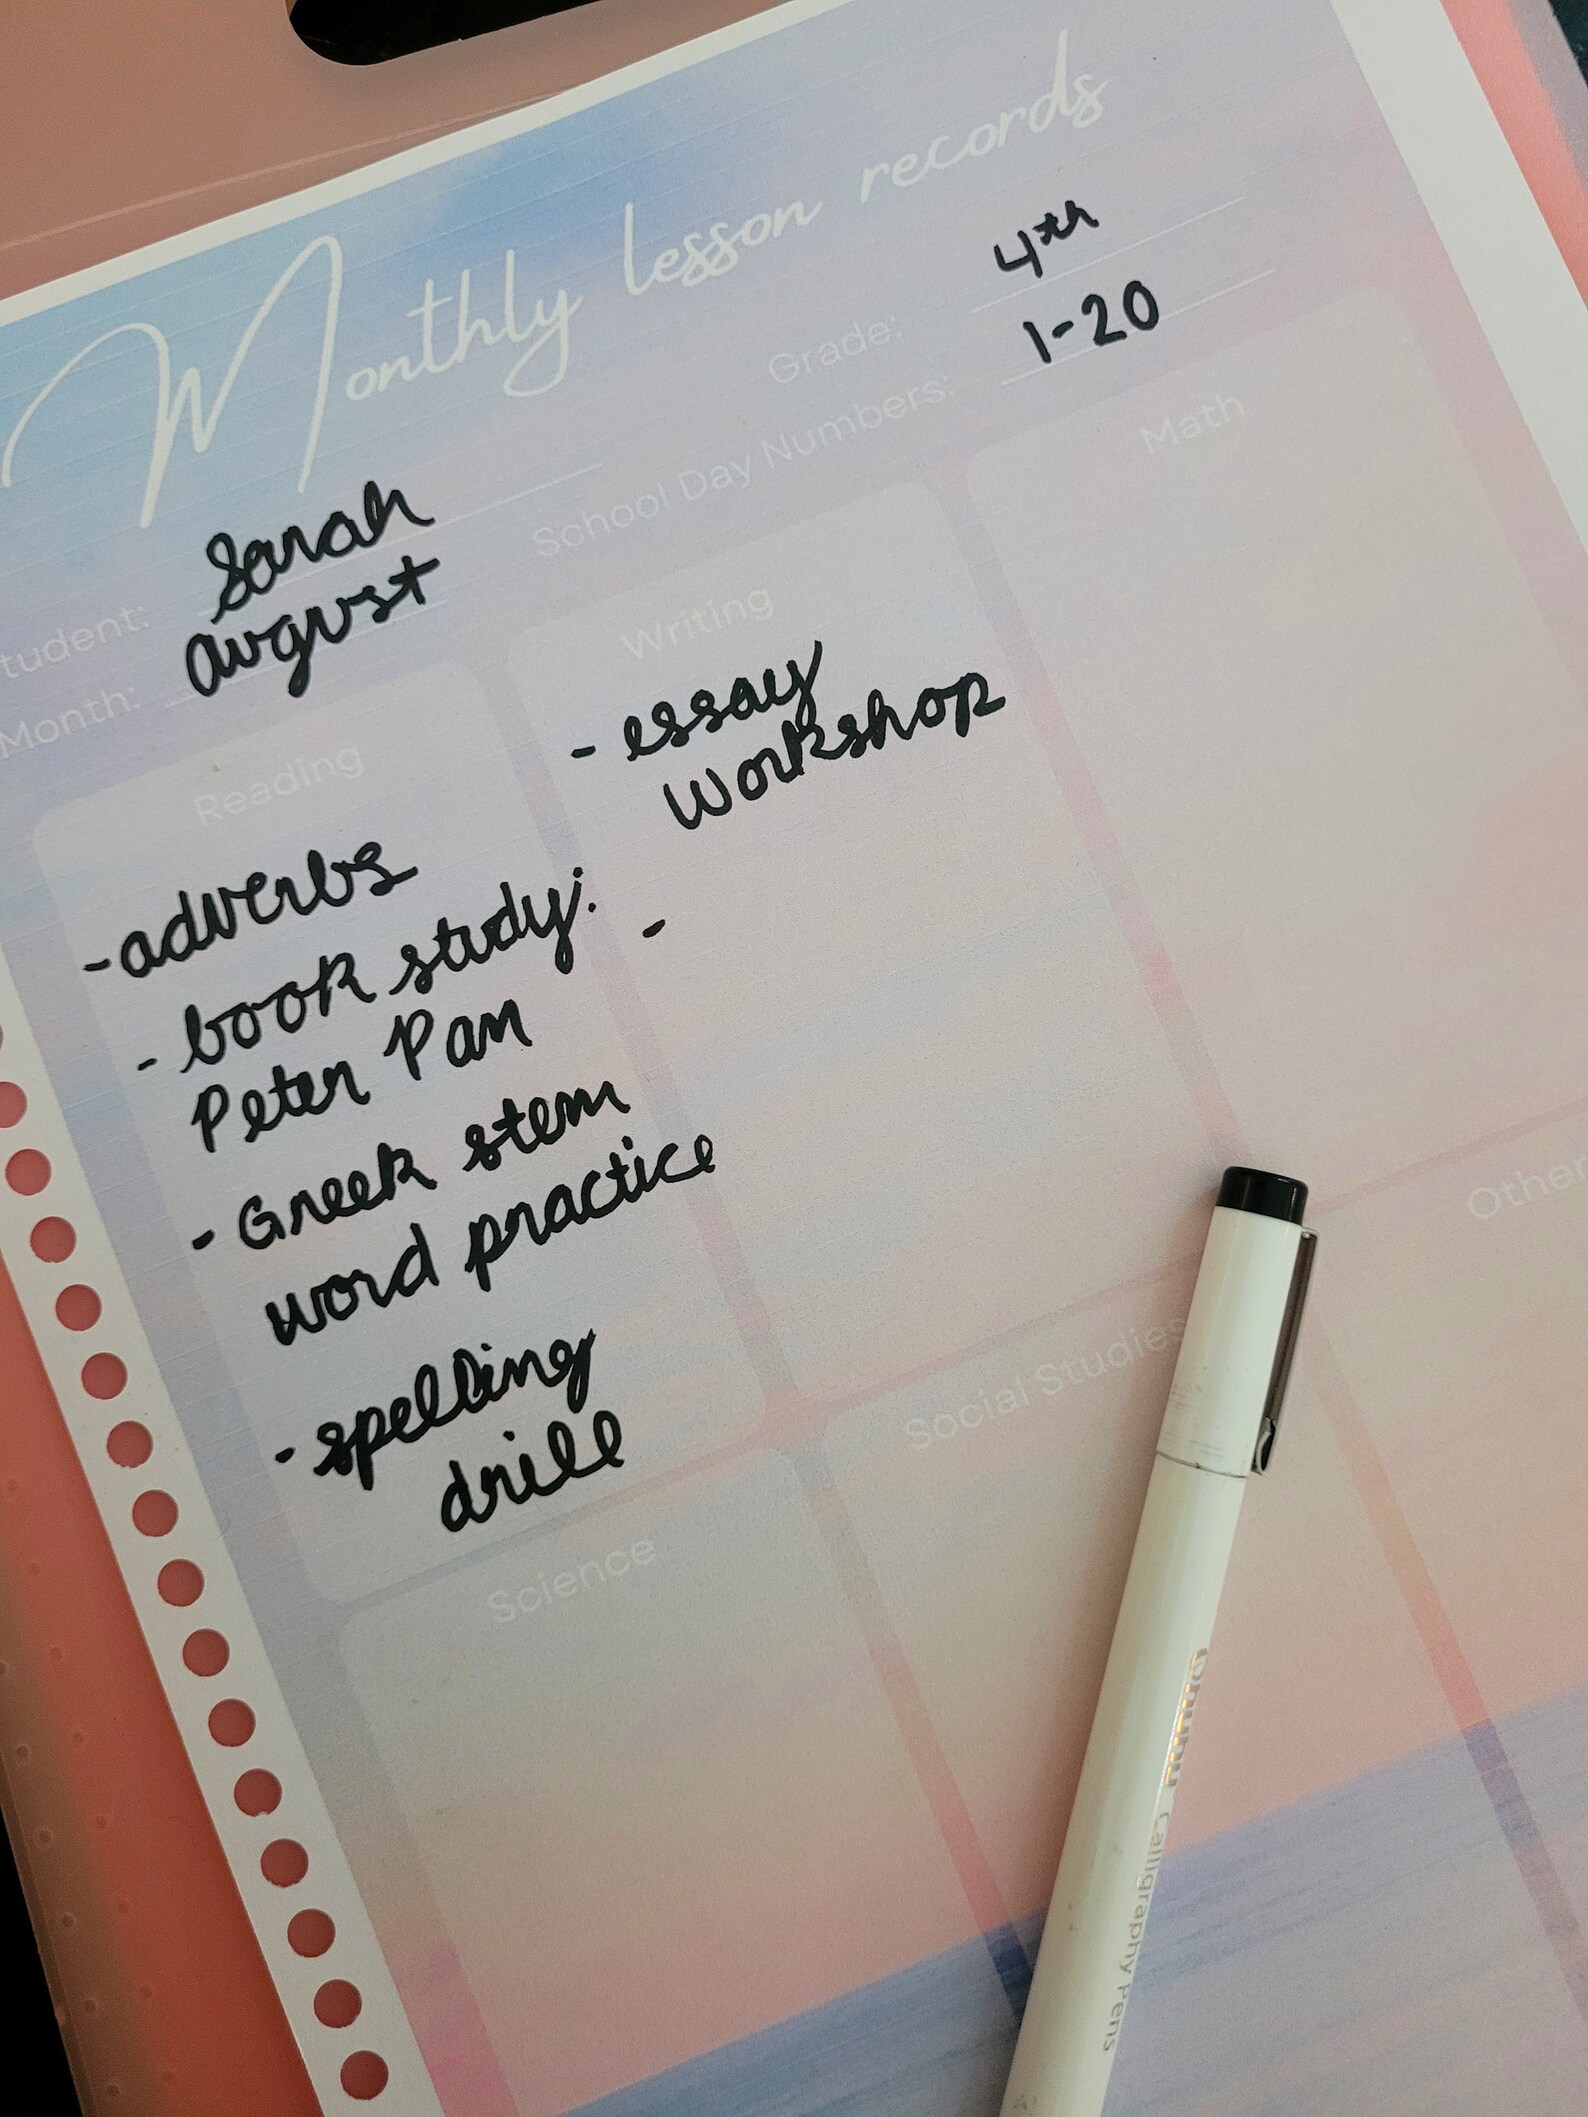 Monthly lesson records
Grade: 4th
School Day Numbers: 1-20
tudent: Sarah
Month: august
Reading
- adverbs
- book study:
Peter Pan
- Greek stem
word practice
- spelling
drill
Writing
- essay
workshop
-
Math
Science
Social Studies
Other
ohuhu Calligraphy Pens